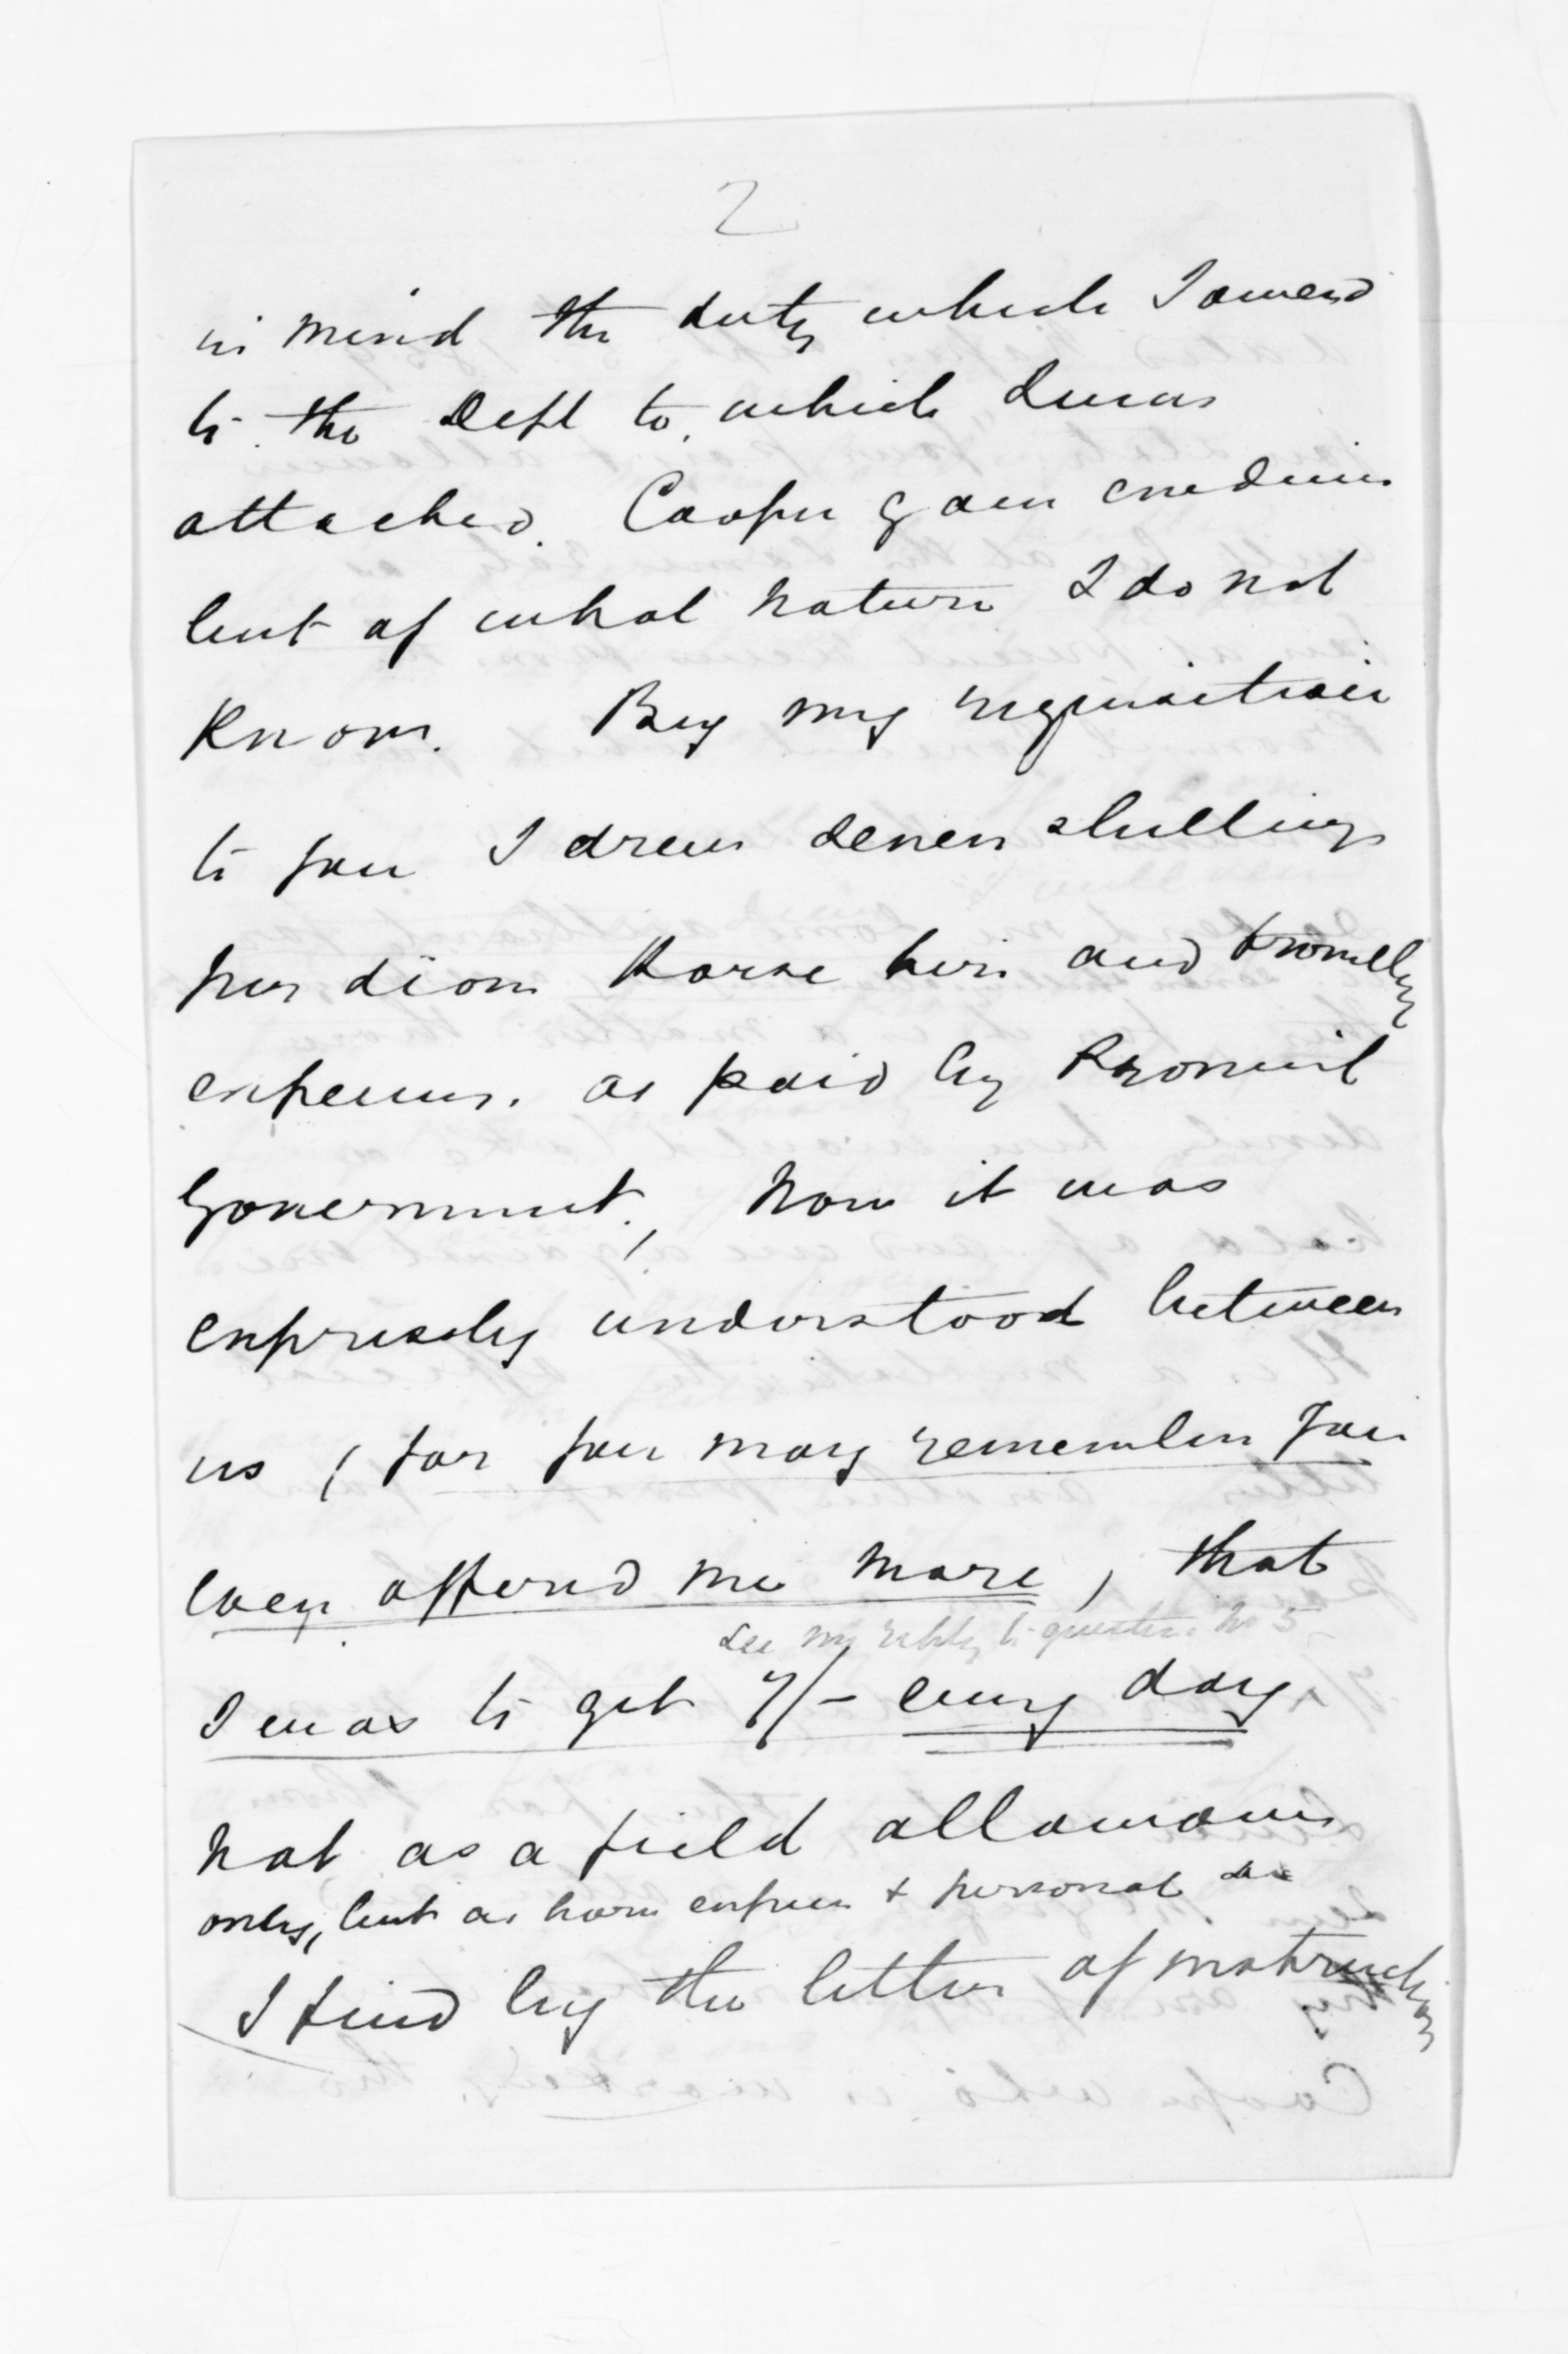 2
in mind the duty which I owed
to the Dept to which I was
attached. Cooper gave evidence
but of what nature I do not
Know. By my requisition
to you I drew seven shillings
per diem Horse hire and travelling
expenses. as paid by Provincial
Government, Now it was
expressly understood between
us (for you may remember you
even offered me more, that
See my reply to question No 5
I was to get 7/- every day
not as a field allowance
only, but as horse expenses & personal do
I find by the letter of instructions